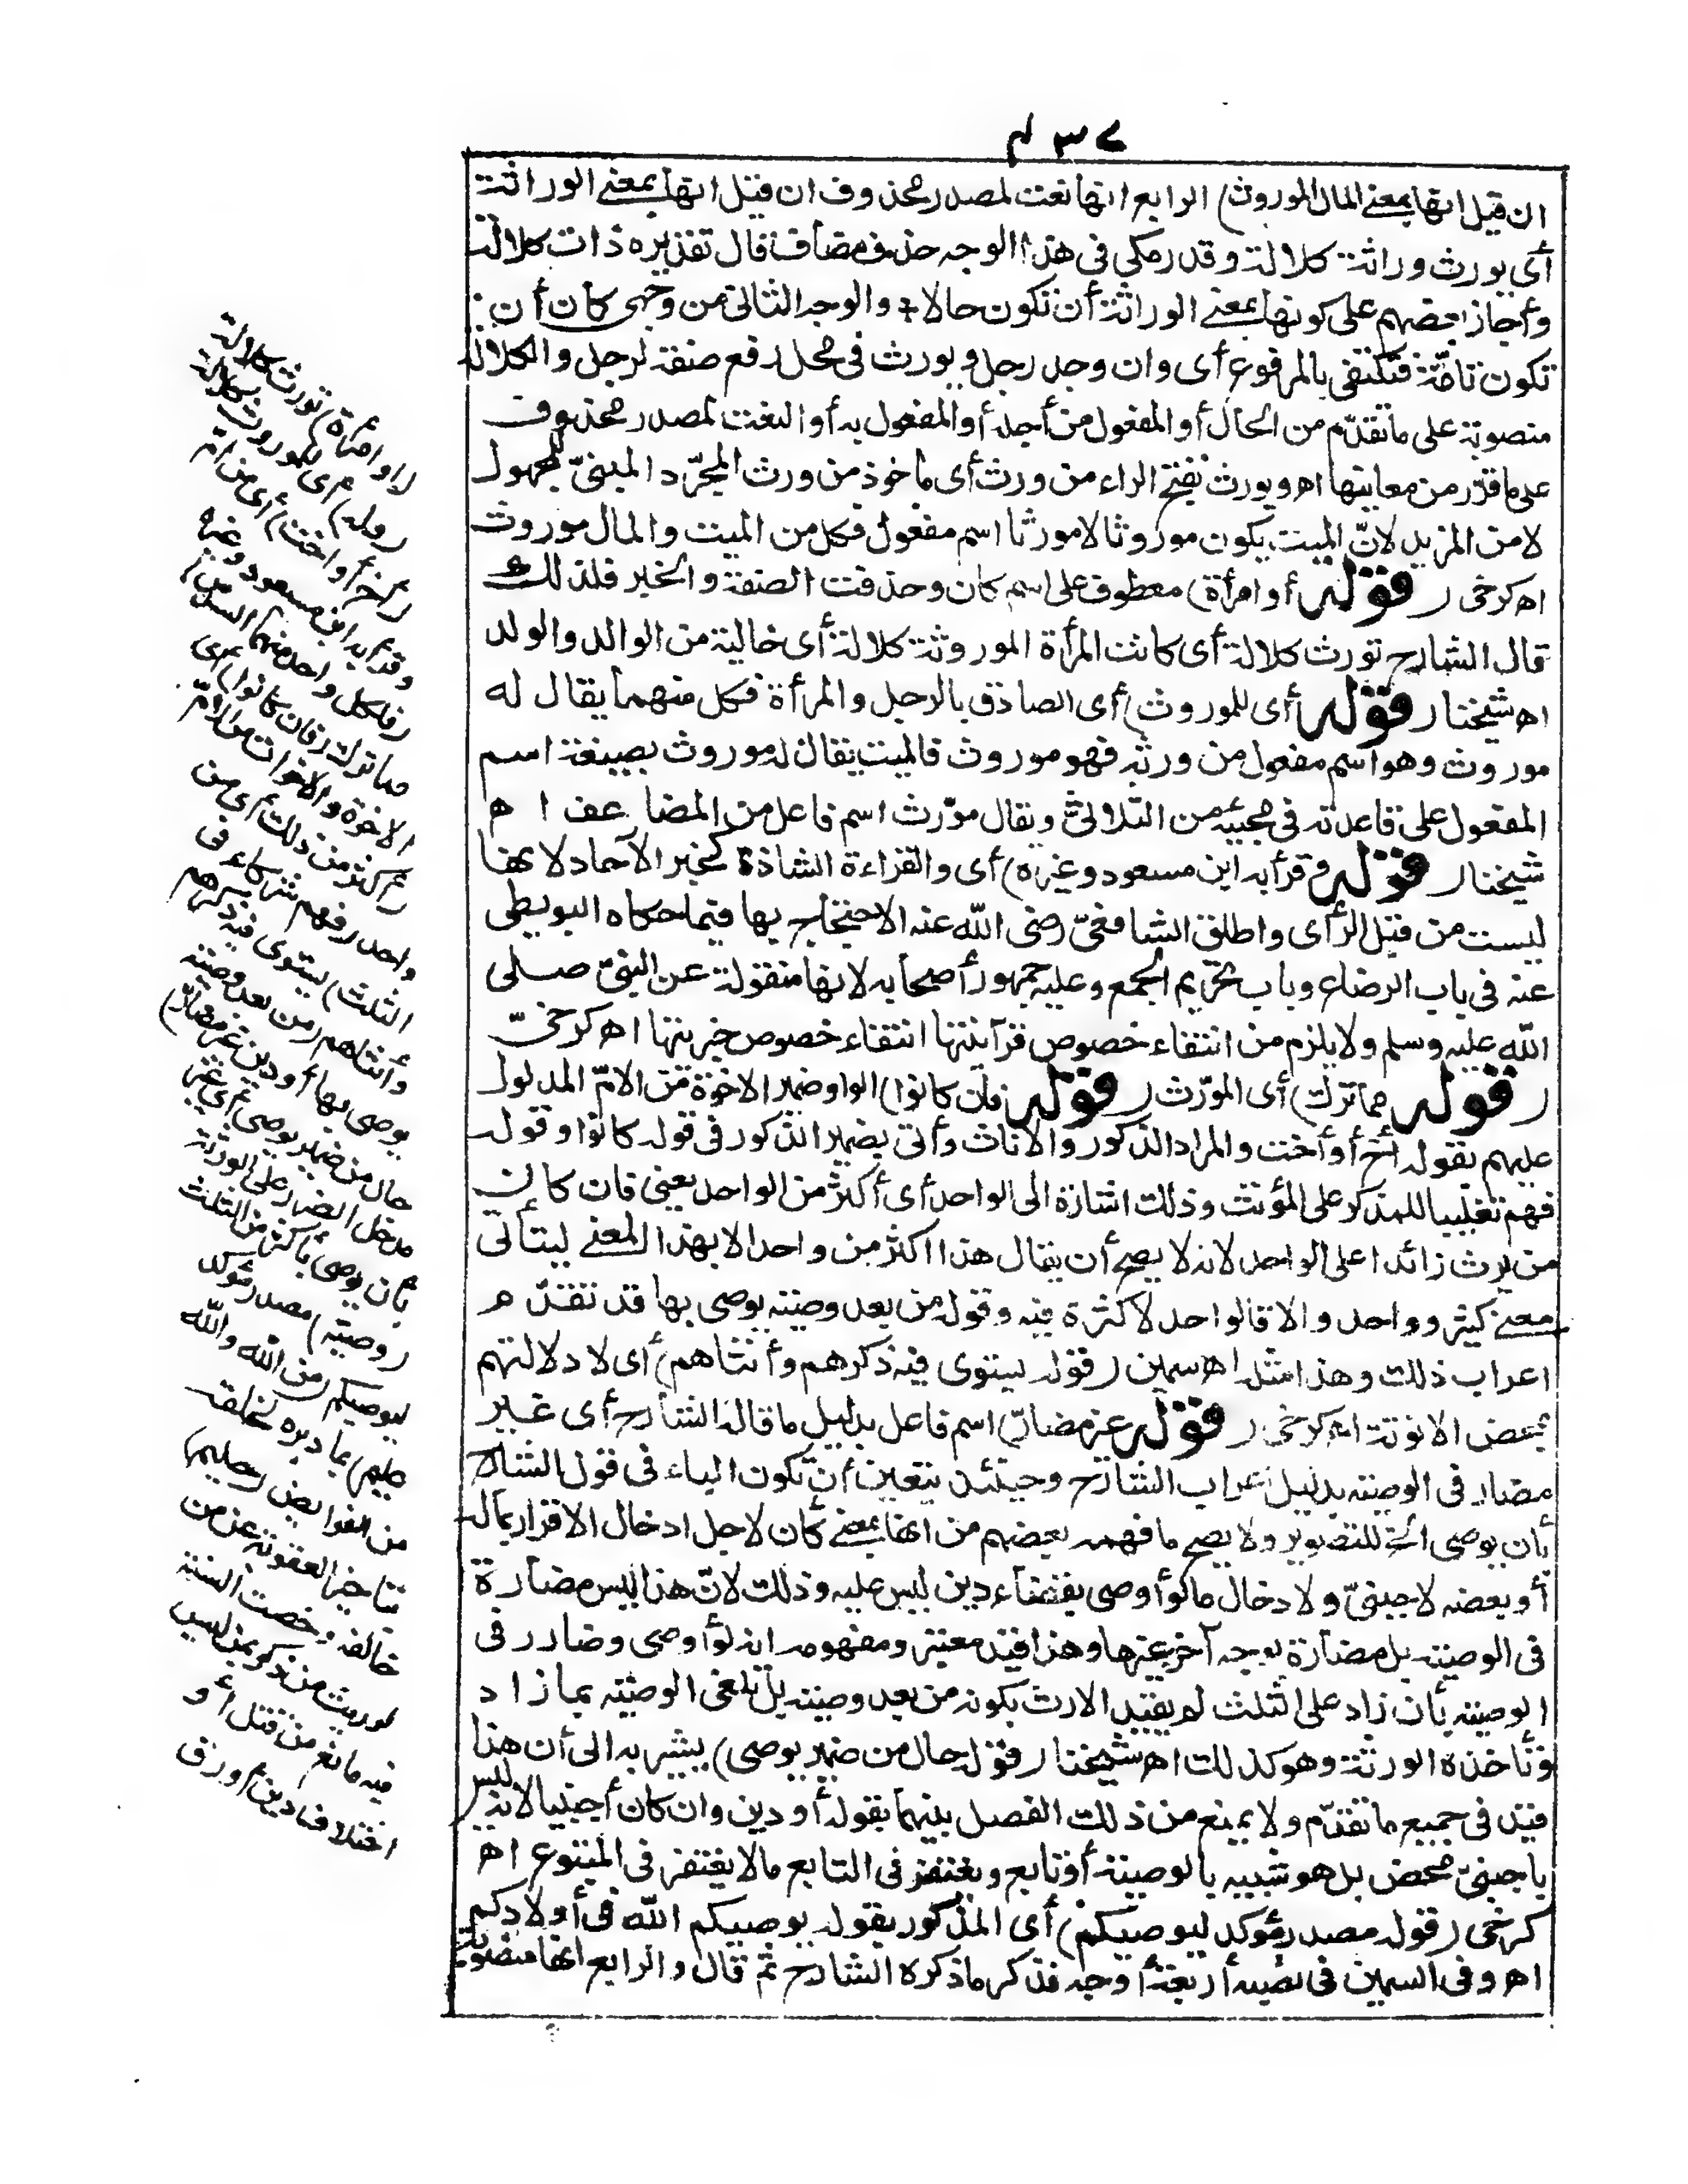 ان قيل انها بمعنى المال الموروث) الرابع انها نعت لمصدر محذوف ان قيل انها بمعنى الوراثة
أى يورث وراثة كلالة وقدر مكى فى هذا الوجه حذف مضاف قال تقديره ذات كلالة
وأجاز بعضهم على كونها بمعنى الوراثة أن تكون حالا والوجه الثانى من وجهى كان أن
تكون تامّة فتكتفى بالمرفوع أى وان وجد رجل ويورث فى محل رفع صفة لرجل والكلالة
منصوبة على ما تقدّم من الحال أو المفعول من أجله أو المفعول به أو النعت لمصدر محذوف
على ما قدّر من معانيها اه ويورث بفتح الراء من ورث أى مأخوذ من ورث المجرّد المبنىّ للمجهول
لا من المزيد لانّ الميت يكون موروثا لا مورثا اسم مفعول فكل من الميت والمال موروث
اه كرخى (قوله أو امرأة) معطوف على اسم كان وحذفت الصفة والخبر فلذلك
قال الشارح تورث كلالة أى كانت المرأة الموروثة كلالة أى خالية من الوالد والولد
اه شيخنا (قوله أى للموروث) أى الصادق بالرجل والمرأة فكل منهما يقال له
موروث وهو اسم مفعول من ورثه فهو موروث فالميت يقال له موروث بصيغة اسم
المفعول على قاعدته فى مجيئه من الثلاثىّ ويقال مورّث اسم فاعل من المضاعف اه
شيخنا (قوله وقرأ به ابن مسعود وغيره) أى والقراءة الشاذة كخبر الآحاد لانها
ليست من قبل الرأى وأطلق الشافعىّ رضى الله عنه الاحتجاج بها فيما حكاه البويطى
عنه فى باب الرضاع وباب تحريم الجمع وعليه جمهور أصحابه لانها منقولة عن النبىّ صلى
الله عليه وسلم ولا يلزم من انتفاء خصوص قرآنيتها انتفاء خصوص خبريتها اه كرخىّ
(قوله مما ترك) أى المورّث (قوله فان كانوا) الواو ضمير الاخوة من الامّ المدلول
عليهم بقوله أخ أو أخت والمراد الذكور والاناث وأتى بضمير الذكور فى قوله كانوا وقوله
فهم تغليبا للمذكر على المؤنث وذلك اشارة الى الواحد أى أكثر من الواحد يعنى فان كان
من يرث زائدا على الواحد لانه لا يصح أن يقال هذا اكثر من واحد الا بهذا المعنى ليتأتى
معنى كثير وواحد والا فالواحد لا كثرة فيه وقوله من بعد وصية يوصى بها قد تقدّم
اعراب ذلك وهذا مثله اه سمين (قوله يستوى فيه ذكرهم وأنثاهم) أى لادلالتهم
بمحض الانوثة اه كرخى (قوله غير مضارّ) اسم فاعل بدليل ما قاله الشارح أى غير
مضار فى الوصية بدليل اعراب الشارح وحينئذ يتعين أن تكون الباء فى قول الشارح
بأن يوصى الخ للتصوير ولا يصح ما فهمه بعضهم من انها بمعنى كأن لاجل ادخال الاقرار بماله
أو بعضه لاجنبىّ ولادخال ما لو أوصى بقضاء دين ليس عليه وذلك لانّ هذا ليس مضارة
فى الوصية بل مضارة بوجه آخر غيرها وهذا قيد معتبر ومفهومه انه لو أوصى وضارر فى
الوصية بأن زاد على الثلث لم يقيد الارث بكونه من بعد وصية بل تلغى الوصية بما زاد
وتأخذه الورثة وهو كذلك اه شيخنا (قوله حال من ضمير يوصى) يشير به الى أن هذا
قيد فى جميع ما تقدّم ولا يمنع من ذلك الفصل بينهما بقوله أو دين وان كان أجنبيا لانه ليس
باجنبىّ محض بل هو شبيه بالوصية أو تابع ويغتفر فى التابع مالا يغتفر فى المتبوع اه
كرخى (قوله مصدر مؤكد ليوصيكم) أى المذكور بقوله يوصيكم الله فى أولادكم
اه وفى السمين فى نصبه أربعة أوجه فذكر ما ذكره الشارح ثم قال والرابع انها منصوبة
(أو امرأة) تورث كلالة
(وله) أى للموروث كلالة
(أخ أو أخت) أى من أمّ
وقرأ به ابن مسعود وغيره
(فلكل واحد منهما السدس)
مما ترك (فان كانوا) أى
الاخوة والاخوات من الامّ
(أكثر من ذلك) أى من
واحد (فهم شركاء فى
الثلث) يستوى فيه ذكرهم
وأنثاهم (من بعد وصية
يوصى بها أو دين غير مضارّ)
حال من ضمير يوصى أى غير
مدخل الضرر على الورثة
بأن يوصى بأكثر من الثلث
(وصية) مصدر مؤكد
ليوصيكم (من الله والله
عليم) بما دبره لخلقه
من الفرائض (حليم)
بتأخير العقوبة عن من
خالفه وخصت السنة
توريث من ذكر بمن ليس
فيه مانع من قتل أو
اختلاف دين أو رق